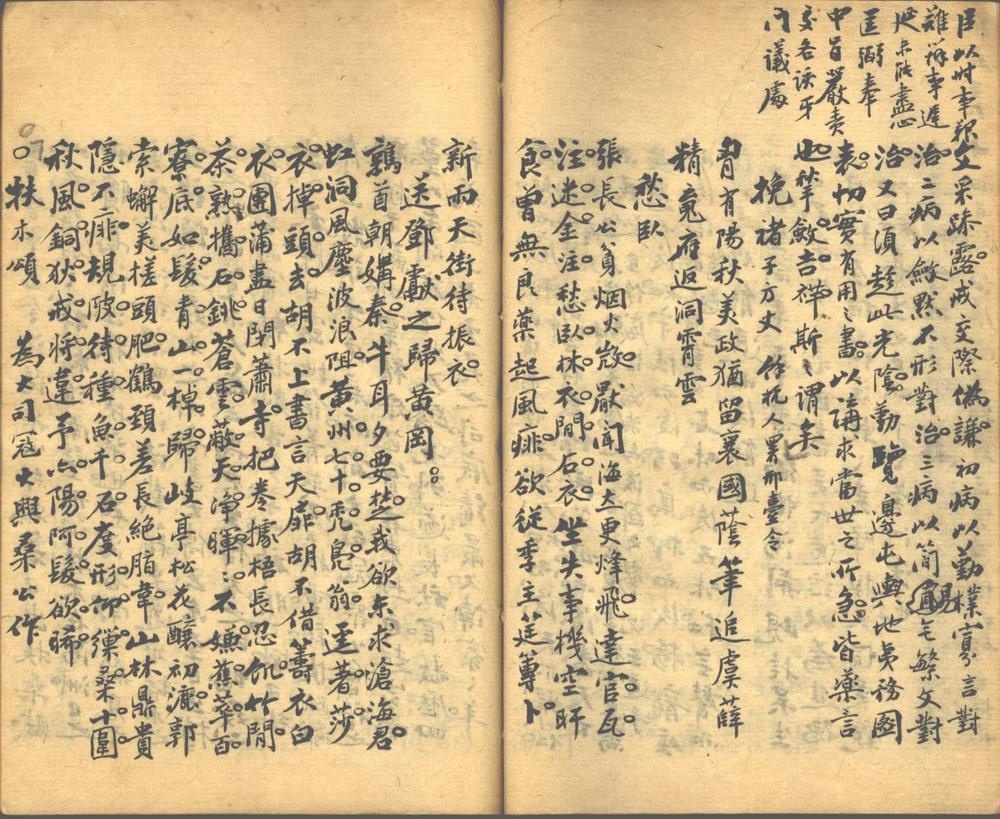 臣以時事報
難稱事遲
延未能盡心
匡弼奉
中旨嚴責
交各該牙
門議處
文采跡露成交際偽謙初病以勤樸寡言對
治二病以斂默不形對治三病以簡易宅繁文對
治又曰須趁此光陰勤覽邊屯輿地夷務圖
表切實有用之書以講求當世之所急皆藥言
也筆斂吉祥斯之謂矣
挽褚子方丈 餘杭人 邢臺令
胥有陽秋美政猶留襄國蔭筆追虞薛
精氣府返洞霄雲
愁臥
張長公貧烟火寂厭聞海上更烽飛達官瓦
注迷金注愁臥林衣閒石衣坐失事機空旰
食曾無良藥起風痱欲從季主筵篿卜
新雨天街待振衣
送鄧獻之歸黃岡
鶉首朝媾秦牛耳夕要楚我欲東求滄海君
虹洞風塵波浪阻黃州七十禿鳧翁還著莎
衣掉頭去胡不上書言天扉胡不借箸衣白
衣團蒲盡日閉蕭寺把卷據梧長忍飢竹閒
茶熟攜石銚蒼雲蔽天淨暉暉不嫌蕉萃百
寮底如髮青山一棹歸岐亭松花釀初漉郭
索蠏美槎頭肥鶴頸差長絕脂韋山林鼎貴
隱不痱規陂待種魚千石度形仰藥桑十圍
秋風銅狄戒將違予亦陽阿髮欲晞
扶木頌 為大司寇大興桑公作